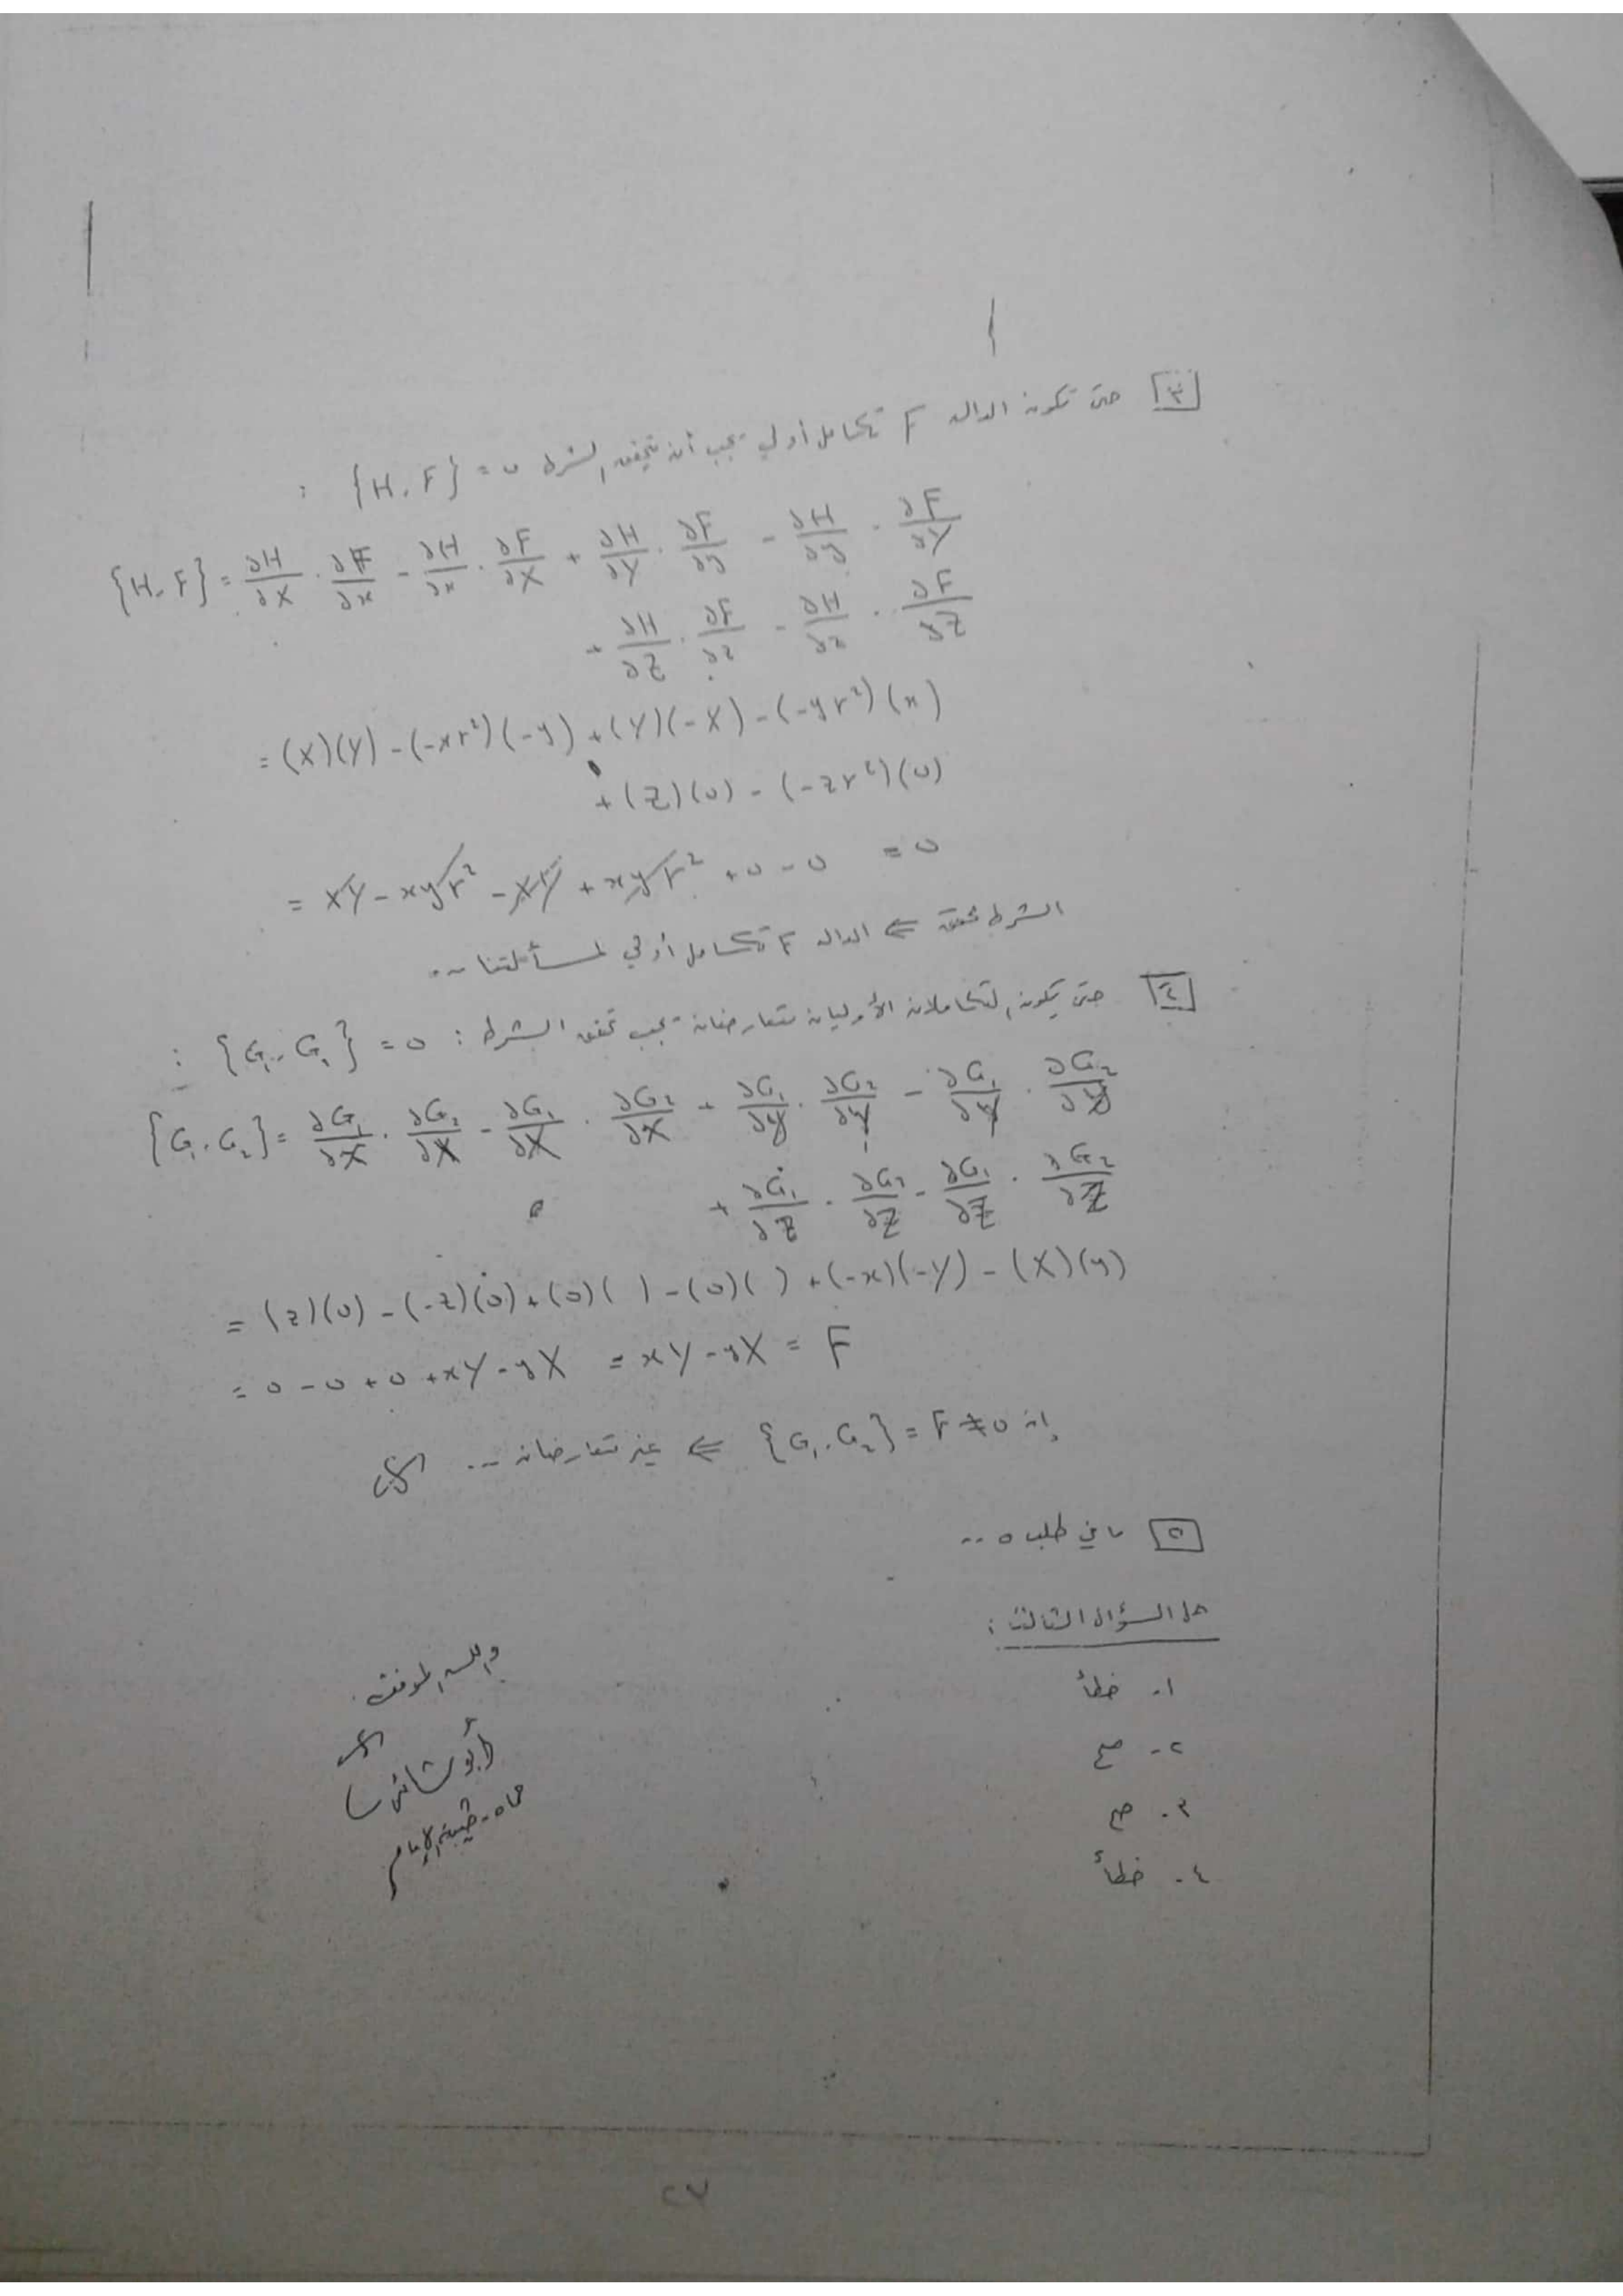 [٣] حتى تكون الدالة F تكامل أولي يجب أن يتحقق الشرط {H, F} = 0 :
{H, F} = ∂H/∂X · ∂F/∂x - ∂H/∂x · ∂F/∂X + ∂H/∂Y · ∂F/∂y - ∂H/∂y · ∂F/∂Y
+ ∂H/∂Z · ∂F/∂z - ∂H/∂z · ∂F/∂Z
= (X)(Y) - (-xr²)(-y) + (Y)(-X) - (-yr²)(x)
+ (Z)(0) - (-zr²)(0)
= XY - xyr² - XY + xyr² + 0 - 0 = 0
الشرط محقق ⇐ الدالة F تكامل أولي لمسألتنا ..
[٤] حتى يكون التكاملان الأوليان متعارضان يجب تحقق الشرط : {G₁, G₂} = 0 :
{G₁, G₂} = ∂G₁/∂X · ∂G₂/∂x - ∂G₁/∂x · ∂G₂/∂X + ∂G₁/∂y · ∂G₂/∂y - ∂G₁/∂y · ∂G₂/∂y
+ ∂G₁/∂z · ∂G₂/∂z - ∂G₁/∂z · ∂G₂/∂z
= (z)(0) - (-z)(0) + (0)( ) - (0)( ) + (-x)(-Y) - (X)(y)
= 0 - 0 + 0 + xY - yX = xY - yX = F
إن {G₁, G₂} = F ≠ 0 ⇐ غير متعارضان ...
[٥] ما في طلب ٥ ..
حل السؤال الثالث :
١- خطأ
٢- صح
٣- صح
٤- خطأ
والله الموفق.
أبو
حماه - طيبة الإمام
٢٧